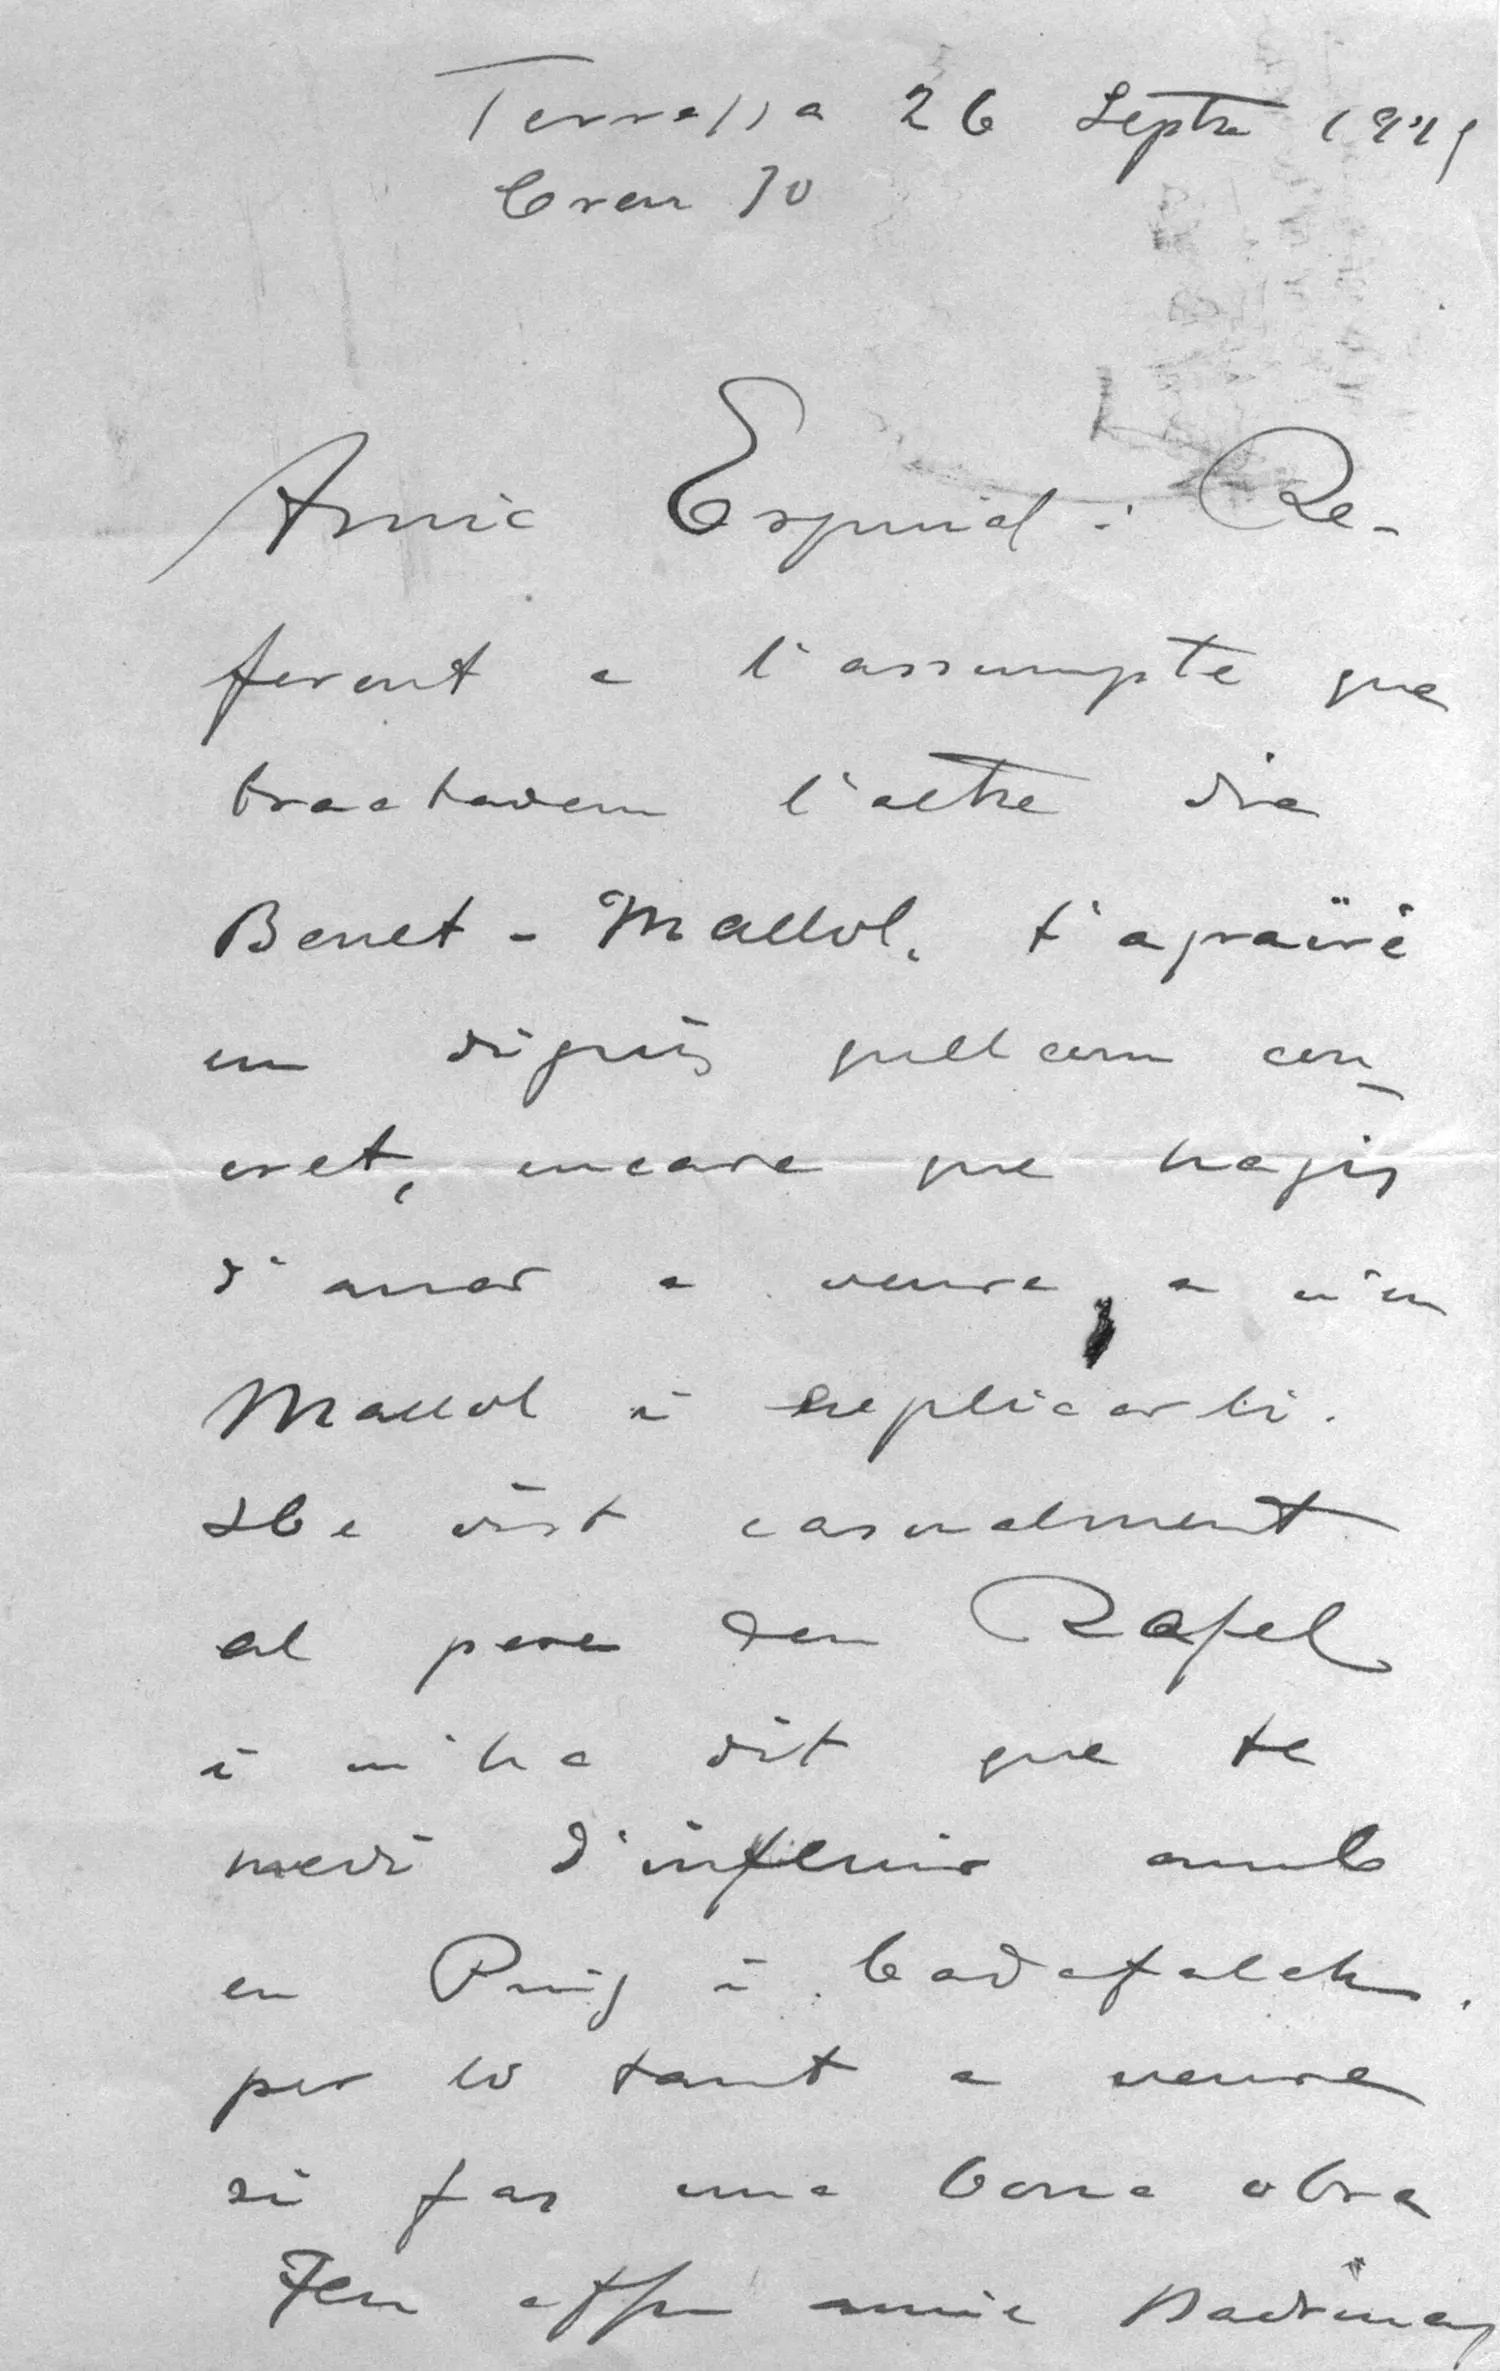 Terrassa 26 Septre
Creu 70
Amic Espinal : Re-
ferent a l'assumpte que
tractavem l'altre dia
Benet - Mallol, t'agraïré
em diguis quelcom con
cret, encare que hagis
d'anar a veure a n'en
Mallol i explicarli.
He vist casualment
al pare den Rafel
i m'ha dit que te
medi d'influir amb
en Puig i Cadafalch.
per lo tant a veure
si fas una bona obra
Teu affm amic